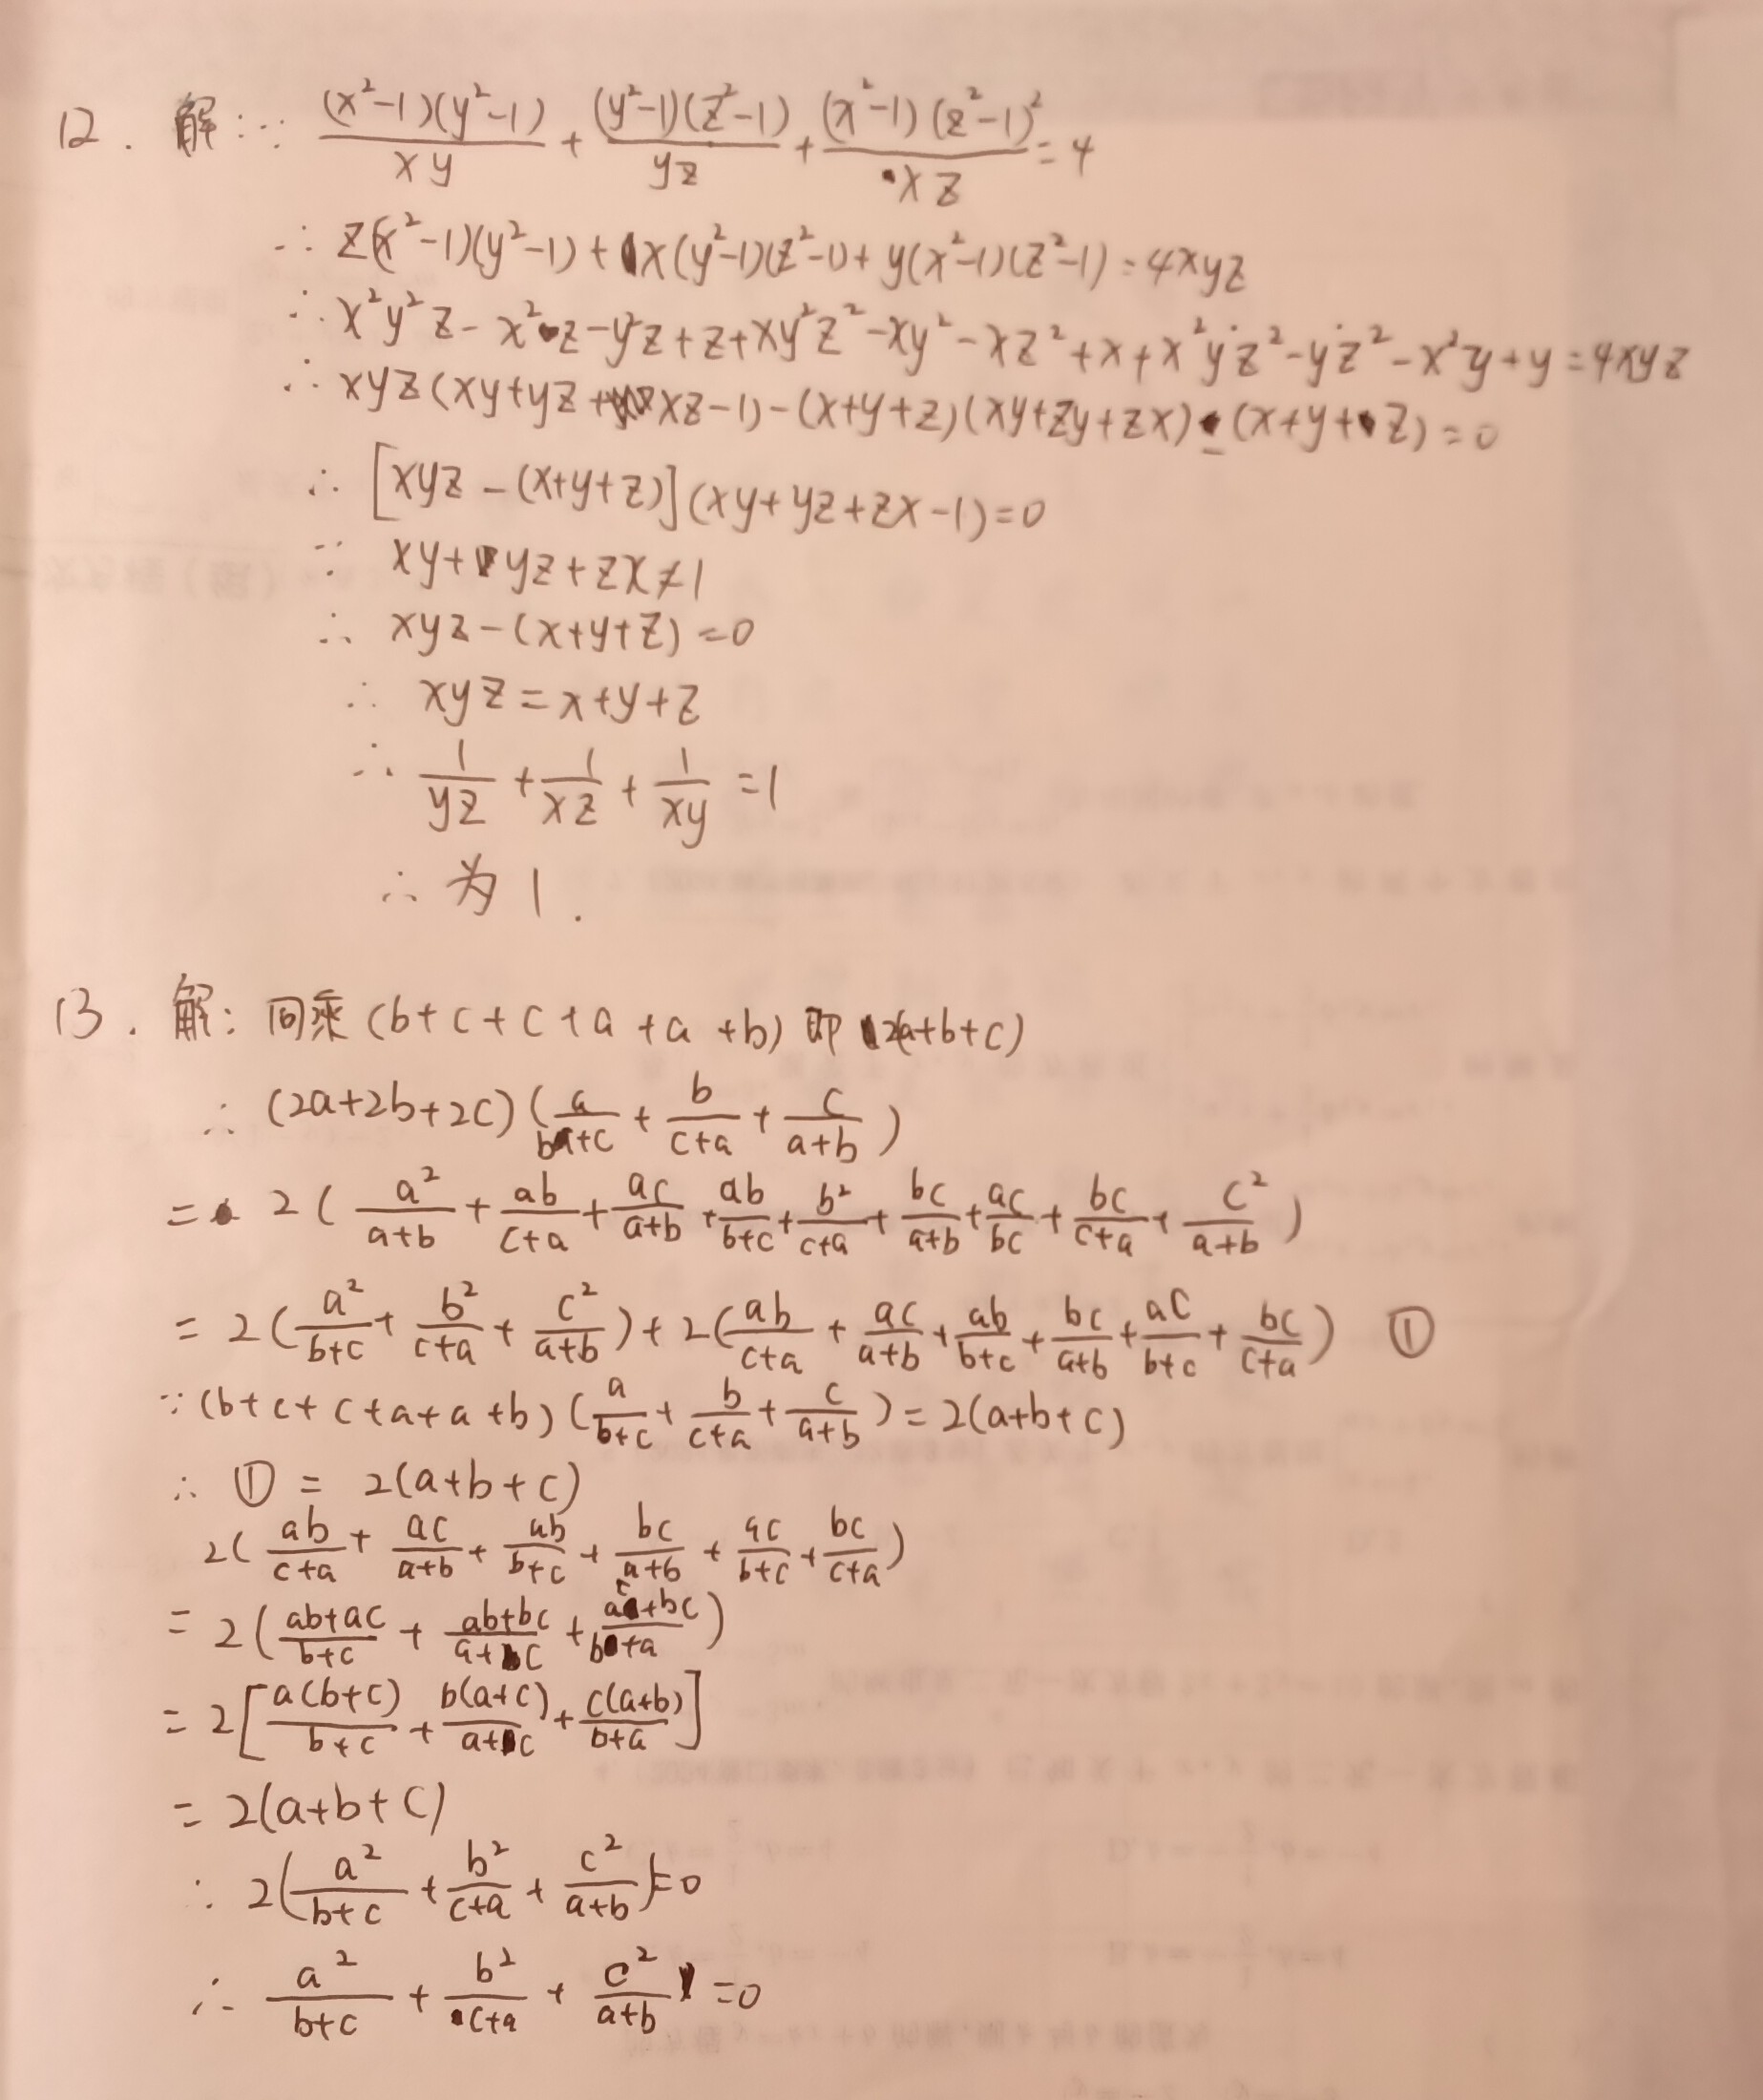 12. 解:∵ (x²-1)(y²-1)/xy + (y²-1)(z²-1)/yz + (x²-1)(z²-1)²/xz = 4
∴ z(x²-1)(y²-1) + x(y²-1)(z²-1) + y(x²-1)(z²-1) = 4xyz
∴ x²y²z - x²z - y²z + z + xy²z² - xy² - xz² + x + x²yz² - yz² - x²y + y = 4xyz
∴ xyz(xy+yz+xz-1) - (x+y+z)(xy+zy+zx) - (x+y+z) = 0
∴ [xyz - (x+y+z)](xy+yz+zx-1) = 0
∵ xy+yz+zx≠1
∴ xyz - (x+y+z) = 0
∴ xyz = x+y+z
∴ 1/yz + 1/xz + 1/xy = 1
∴ 为1.
13. 解: 同乘(b+c+c+a+a+b) 即 2(a+b+c)
∴ (2a+2b+2c)(a/b+c + b/c+a + c/a+b)
= 2(a²/a+b + ab/c+a + ac/a+b + ab/b+c + b²/c+a + bc/a+b + ac/bc + bc/c+a + c²/a+b)
= 2(a²/b+c + b²/c+a + c²/a+b) + 2(ab/c+a + ac/a+b + ab/b+c + bc/a+b + ac/b+c + bc/c+a) ①
∵ (b+c+c+a+a+b)(a/b+c + b/c+a + c/a+b) = 2(a+b+c)
∴ ① = 2(a+b+c)
2(ab/c+a + ac/a+b + ab/b+c + bc/a+b + ac/b+c + bc/c+a)
= 2(ab+ac/b+c + ab+bc/a+c + ac+bc/b+a)
= 2[a(b+c)/b+c + b(a+c)/a+c + c(a+b)/b+a]
= 2(a+b+c)
∴ 2(a²/b+c + b²/c+a + c²/a+b) = 0
∴ a²/b+c + b²/c+a + c²/a+b = 0